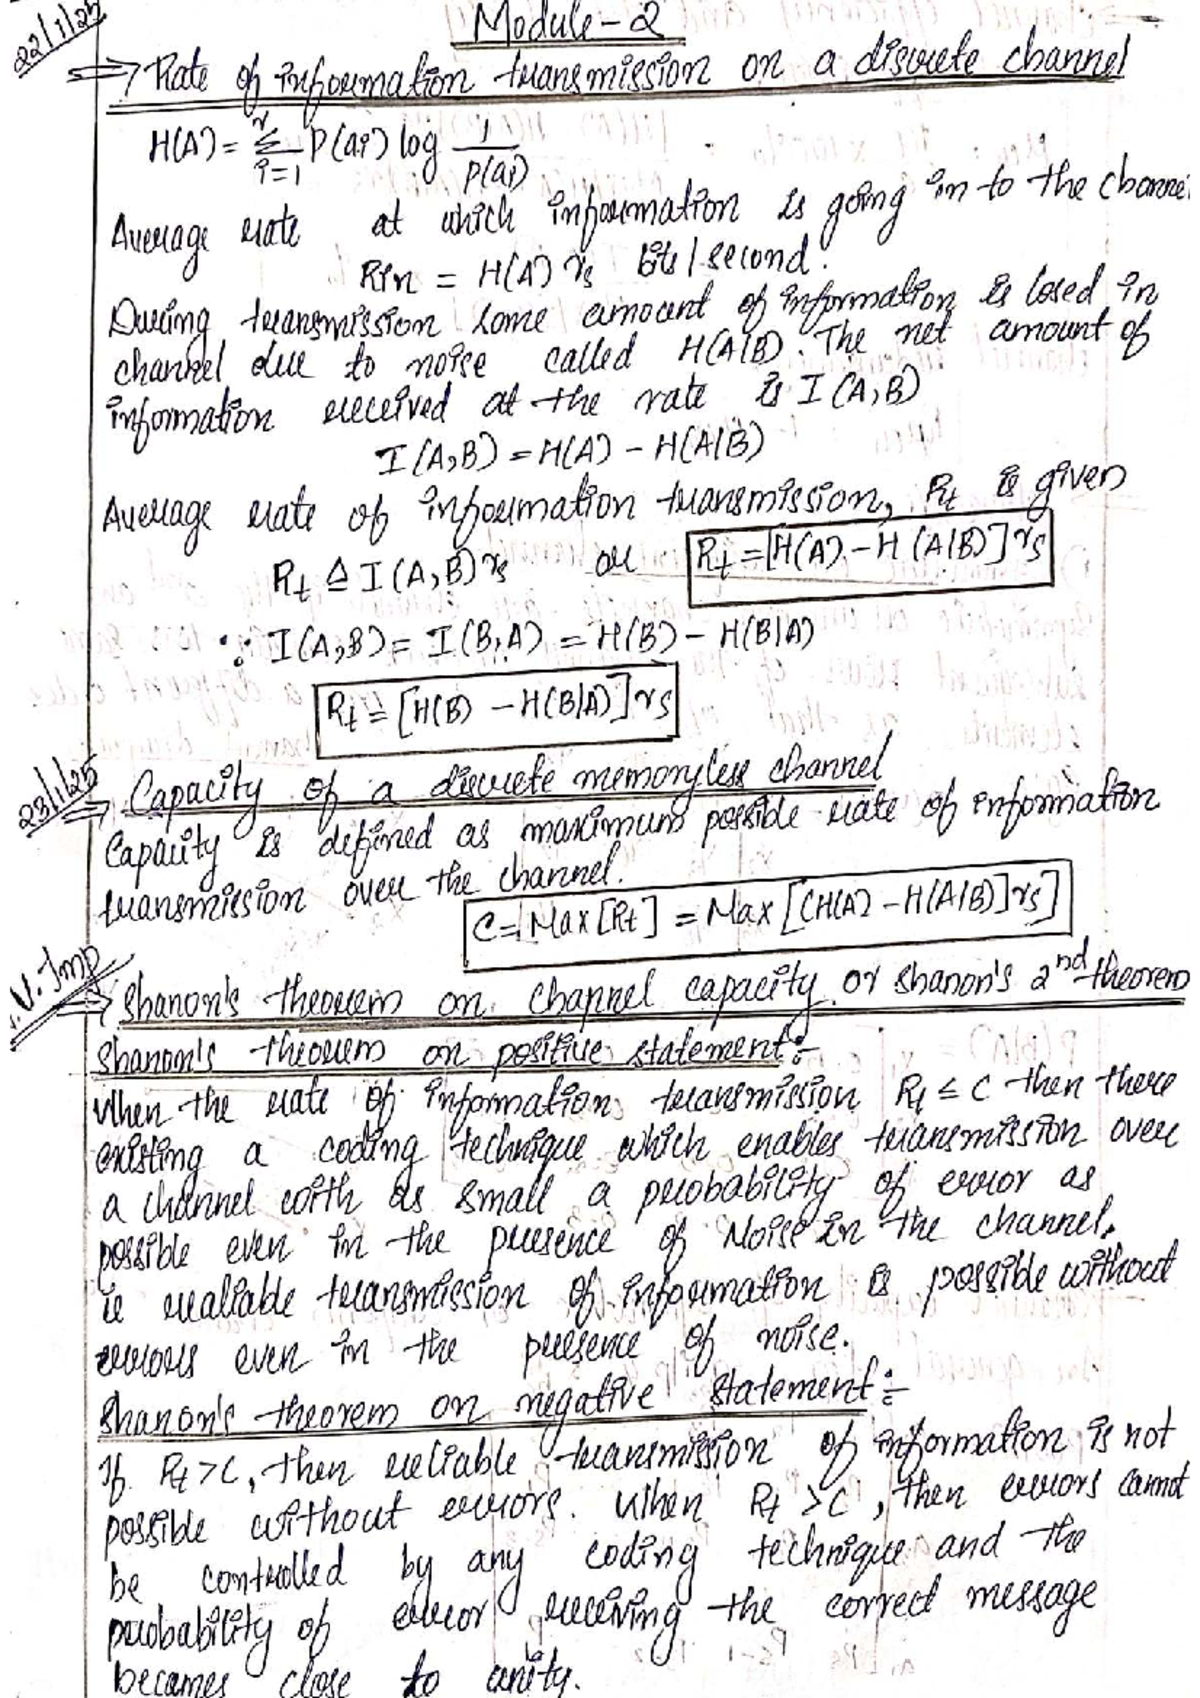 22/1/25
Module-2
⇒ Rate of information transmission on a discrete channel
H(A) = r Σ i=1 P(ai) log 1/P(ai)
Average rate at which information is going in to the channel
Rin = H(A) rs bits/second.
During transmission some amount of information is losed in
channel due to noise called H(A|B). The net amount of
information received at the rate is I(A,B)
I(A,B) = H(A) - H(A|B)
Average rate of information transmission, Rt is given
Rt ≜ I(A,B) rs or Rt = [H(A) - H(A|B)] rs
∵ I(A,B) = I(B,A) = H(B) - H(B|A)
Rt = [H(B) - H(B|A)] rs
23/1/25
⇒ Capacity of a discrete memoryless channel
Capacity is defined as maximum possible rate of information
transmission over the channel.
C = Max [Rt] = Max [CH(A) - H(A|B)] rs]
V.V.Imp
⇒ Shanon's theorem on channel capacity or Shanon's 2nd theorem
Shanon's theorem on positive statement:-
When the rate of information transmission Rt ≤ C then there
existing a coding technique which enables transmission over
a channel with as small a probability of error as
possible even in the presence of Noise in the channel.
ie realiable transmission of information is possible without
errors even in the presence of noise.
Shanon's theorem on negative statement:-
If Rt > C, then reliable transmission of information is not
possible without errors. When Rt > C, then errors cannot
be controlled by any coding technique and the
probability of error receiving the correct message
becomes close to unity.